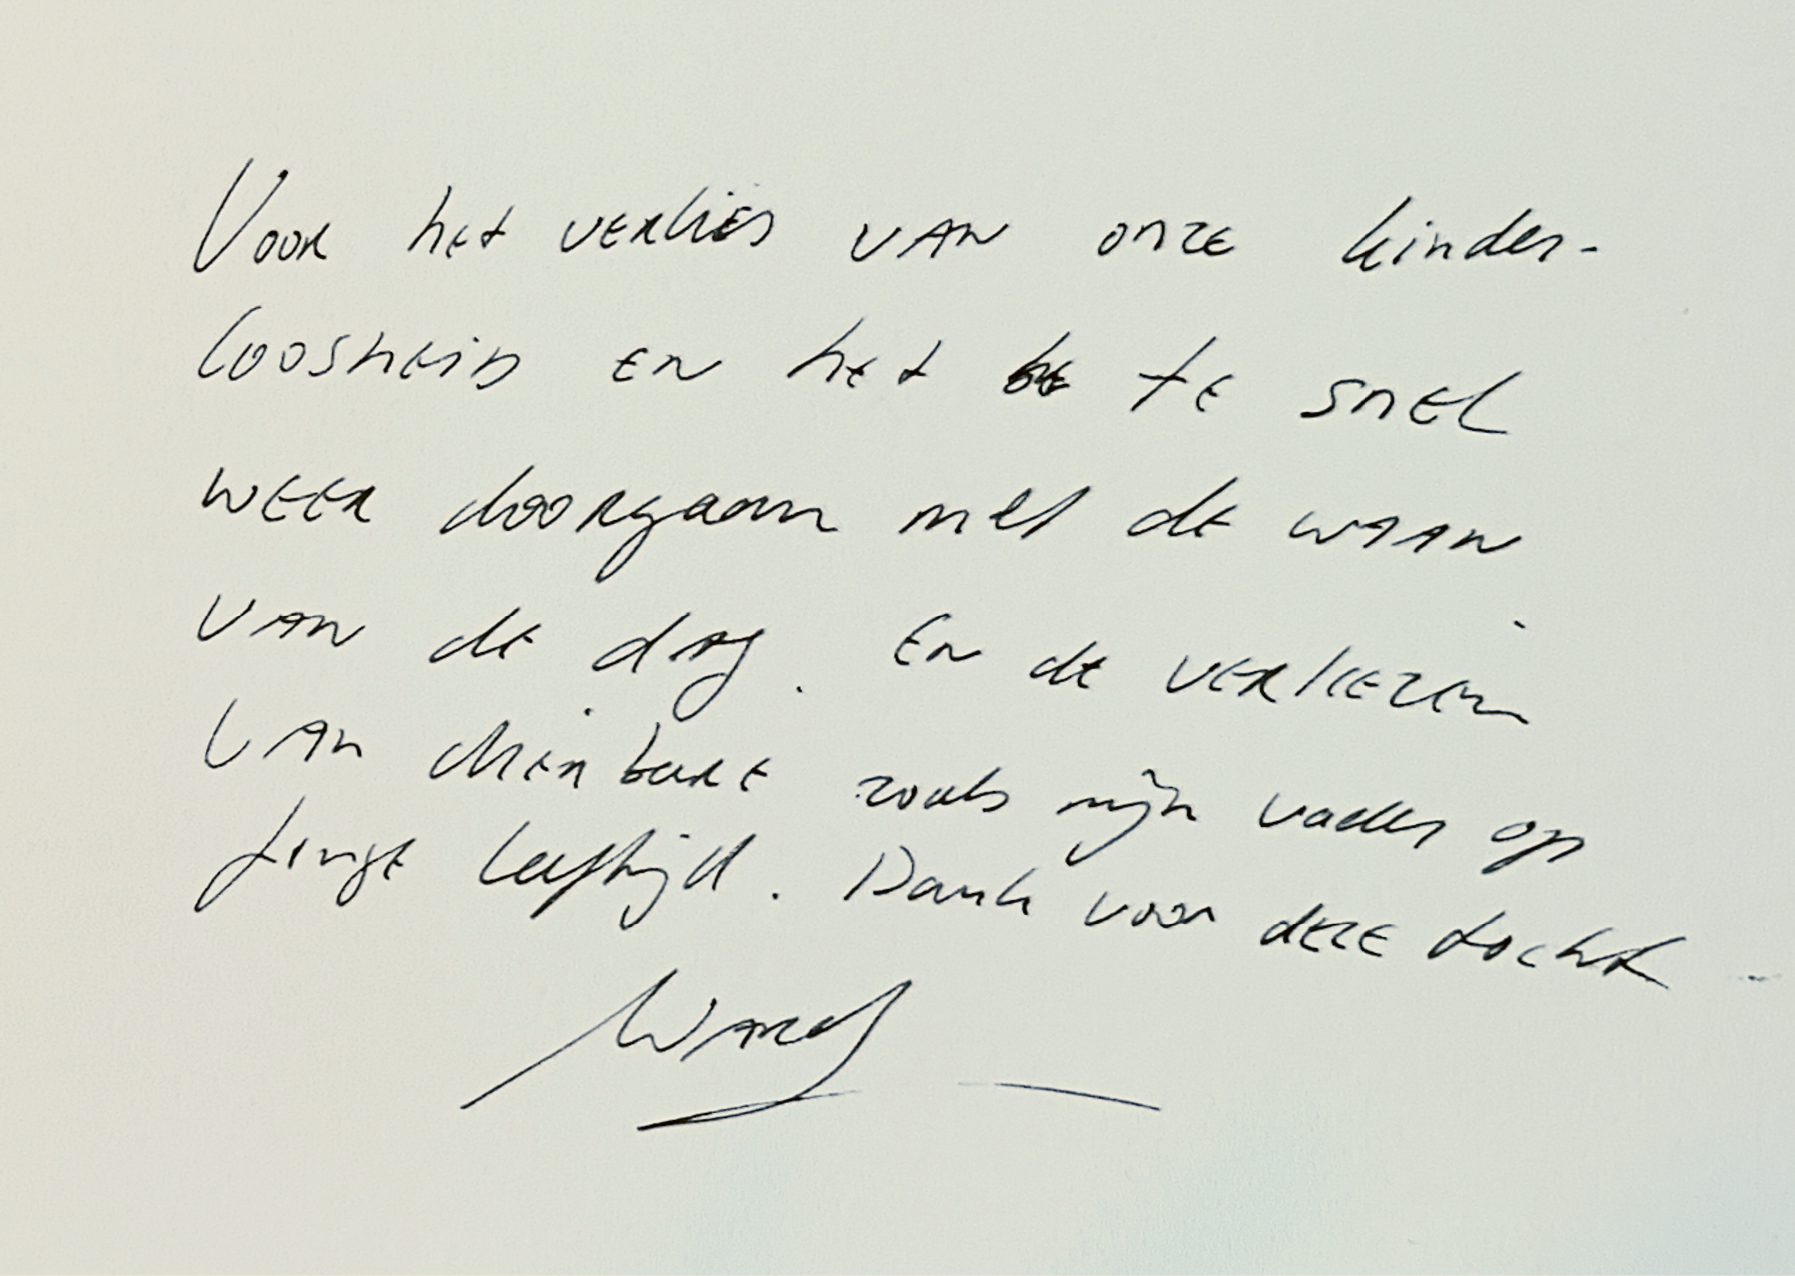 Voor het verlies van onze kinder-
loosheid en het te snel
weer doorgaan met de waan
van de dag. En de verliezen
van dierbare zoals mijn vader op
jonge leeftijd. Dank voor deze tocht
Ward